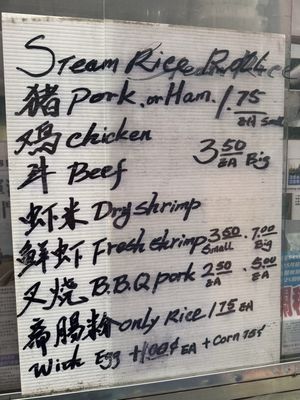 Steam Rice Roll
猪 Pork. or Ham. 1.75 EA Small
鸡 chicken
3.50 EA Big
牛 Beef
虾米 Dry shrimp
鲜虾 Fresh shrimp 3.50 Small . 7.00 Big
叉烧 B.B.Q pork 2.50 EA . 5.00 EA
斋腸粉 only Rice 1.75 EA
With Egg +1.00¢ EA + Corn 75¢